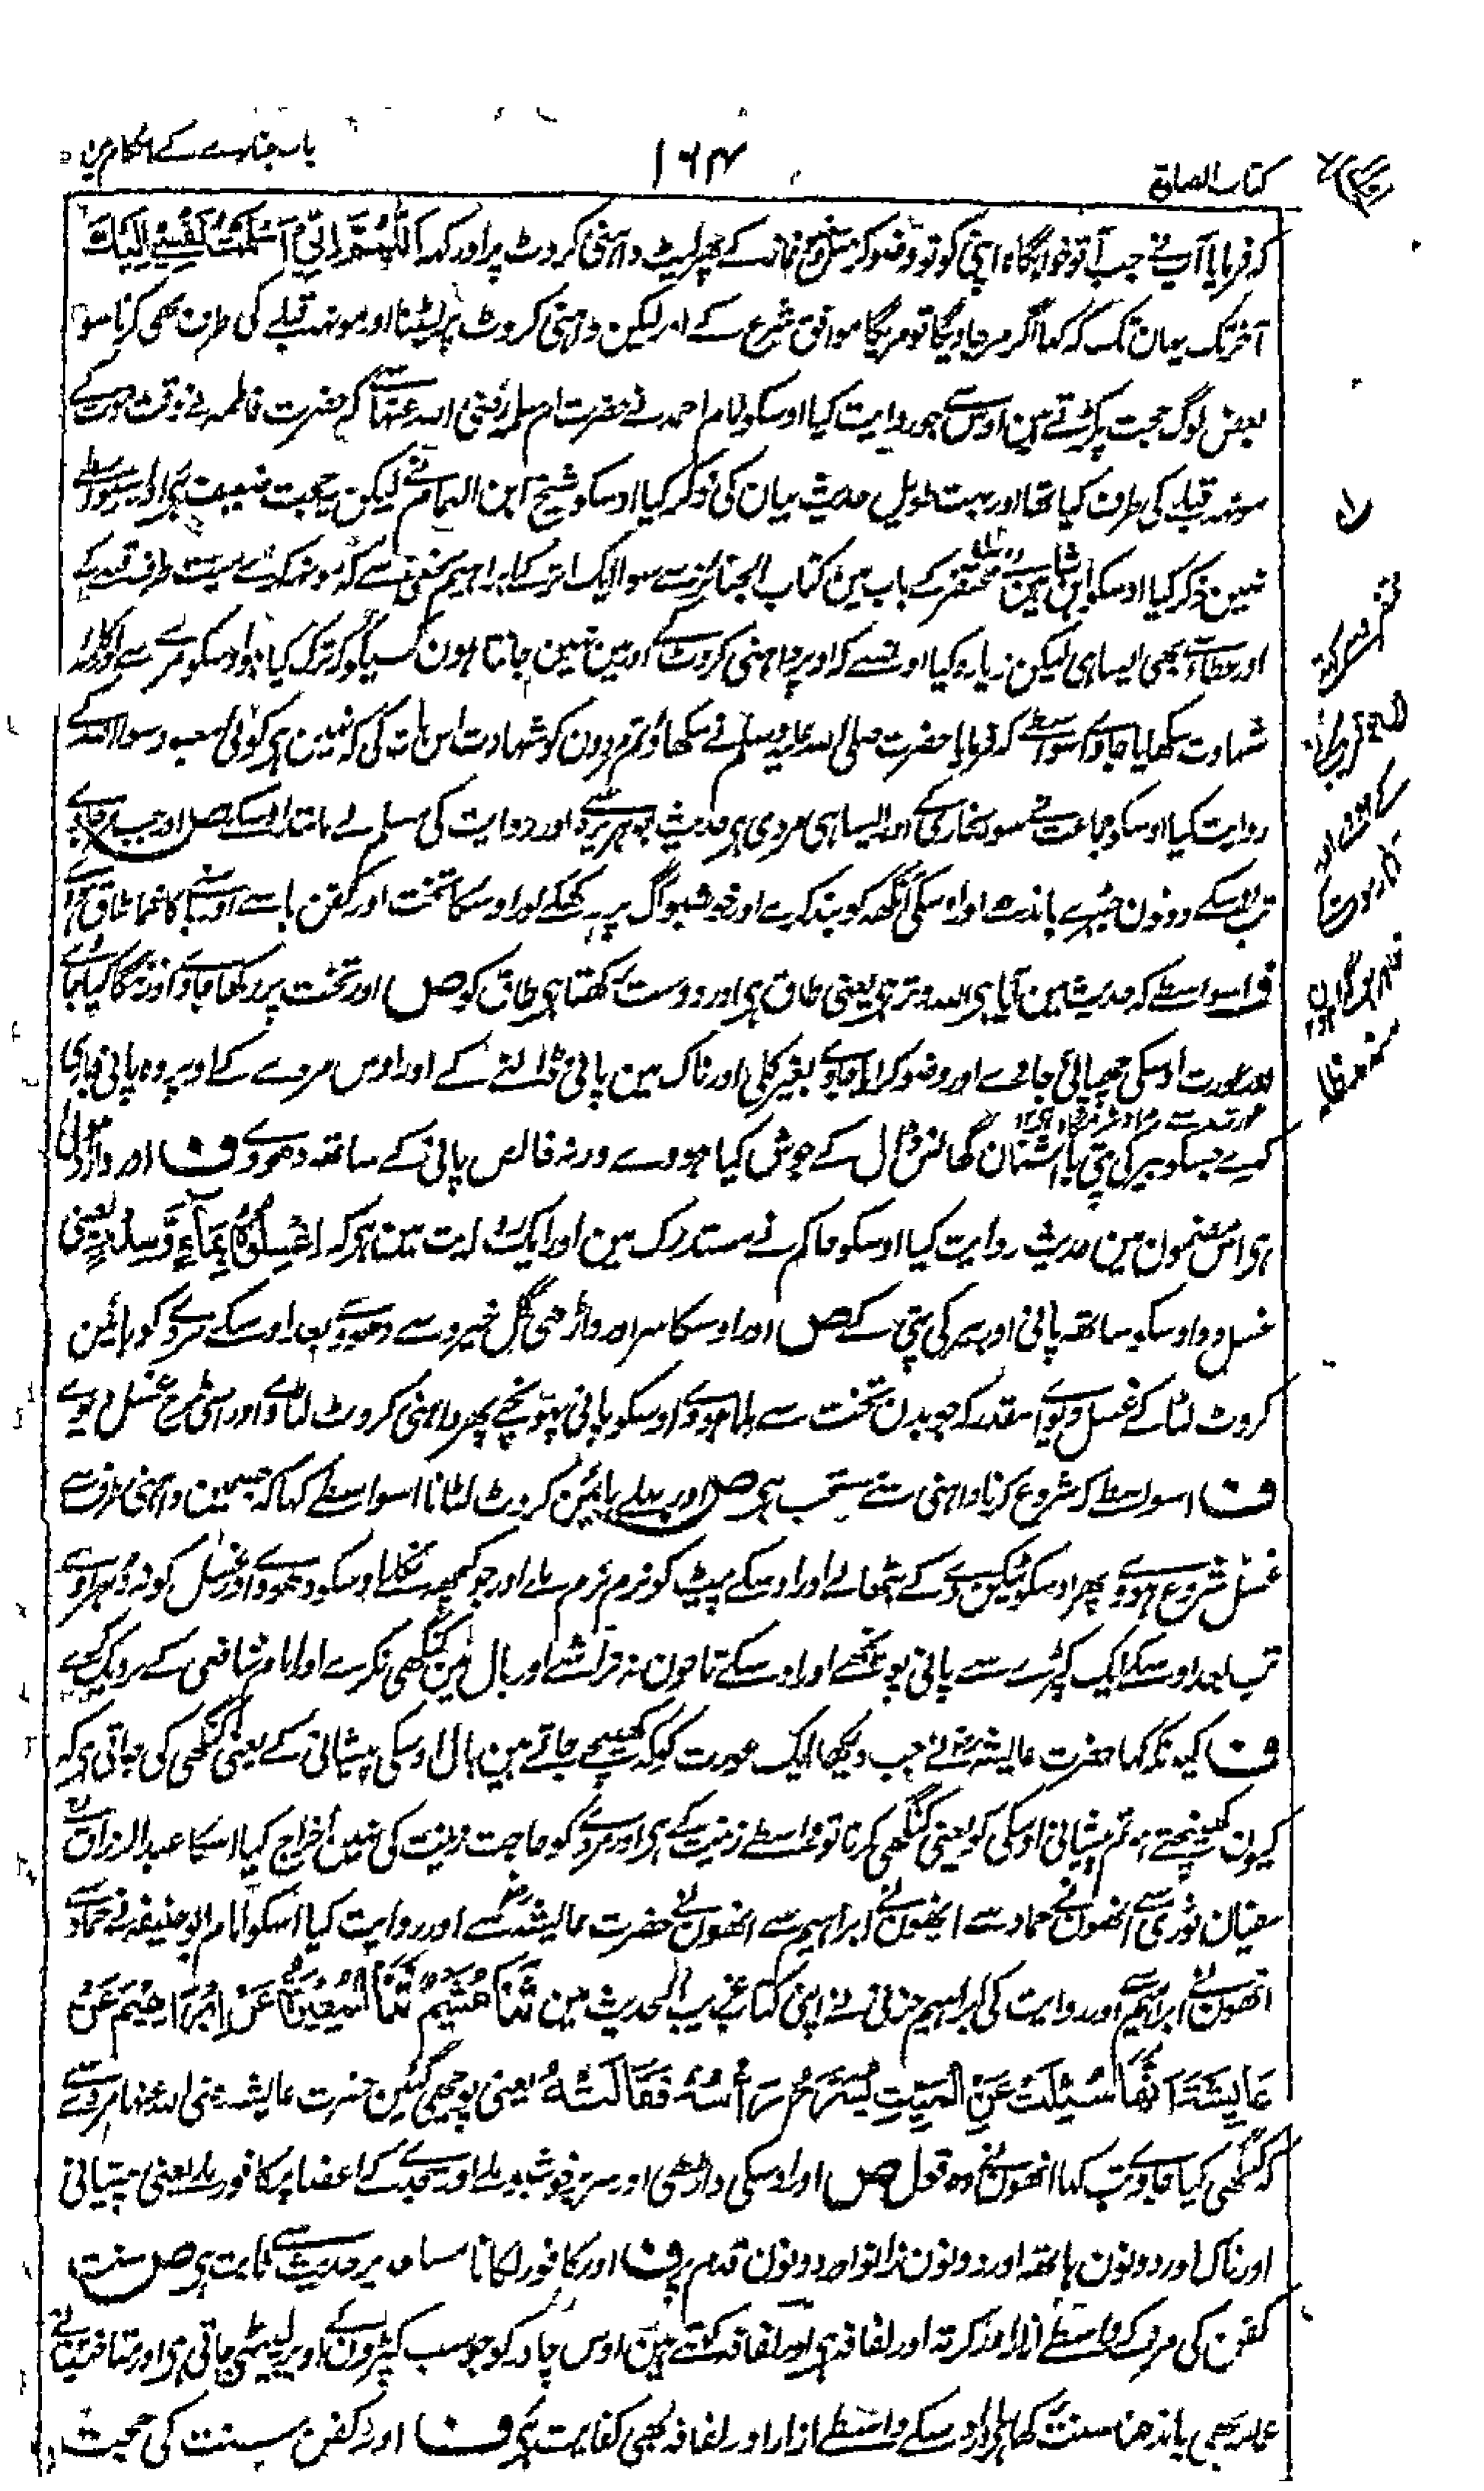 کتاب الصلوٰة
۱۶۴
باب جنازے کے احکام مین
کہ فرمایا آپ نے جب آ تو خوابگاہ اپنی کو تو وضو کر مثل وضو نماز کے پھر لیٹ داہنی کروٹ پر اور کہہ اَللّٰهُمَّ اِنِّیْ اَسْلَمْتُ نَفْسِیْ اِلَیْكَ
آخر تک یہان تک کہ کہا اگر مر جاویگا تو مریگا موافق شرع کے اور لیکن داہنی کروٹ پر لیٹنا اور مونہہ قبلے کی طرف بھی کرنا سو
بعض لوگ حجت پکڑتے ہین اوس سے جو روایت کیا اوسکو امام احمد نے حضرت ام سلمہ رضی اللہ عنہا سے کہ حضرت فاطمہ نے وقت موت کے
مونہہ قبلے کی طرف کیا تھا اور بہت طویل حدیث بیان کی ذکر کیا اوسکو شیخ ابن الہمام نے لیکن یہ حجت ضعیف ہی اور اسیواسطے
نہین ذکر کیا اوسکو ابن شاہین نے محتضر کے باب مین کتاب الجنائز سے سوا ایک اثر کے ابراہیم نخعی سے کہ مونہہ کرے میت طرف قبلہ کے
اور عطا سے بھی ایسا ہی لیکن زیادہ کیا اوسنے کہ اوپر داہنی کروٹ کے اور مین نہین جانتا ہون کسیکو کہ ترک کیا ہو اوسکو مردے سے اور کلمہ
شہادت سکھایا جاوے اسواسطے کہ فرمایا حضرت صلی اللہ علیہ وسلم نے سکھاؤ تم مردون کو شہادت اس بات کی کہ نہین ہی کوئی معبود سوا اللہ کے
روایت کیا اوسکو جماعت نے سوا بخاری کے اور ایسا ہی مروی ہی حدیث ابو ہریرہ سے اور روایت کی مسلم نے مانند اسکے ص اور جب مر جاوے
تب اوسکے دونون جبڑے باندھے اور اوسکی آنکھ کو بند کرے اور خوشبو آگ پر رکھکے اور اوسکا تخت اور کفن باسے
ف اسواسطے کہ حدیث مین آیا ہی اللہ وتر ہی یعنی طاق ہی اور دوست رکھتا ہی طاق کو ص اور تخت پر رکھا جاوے اور ننگا کیا جاوے
اور عورت اوسکی چھپائی جاوے اور وضو کرایا جاوے بغیر کلی اور ناک مین پانی ڈالنے کے اور اوس مردے کے اوپر وہ پانی جاری
کرے جسکو بیر کی پتی یا اشنان گھانس ڈال کے جوش کیا ہووے ورنہ خالص پانی کے ساتھ دھووے ف اور وارد
ہی اس مضمون مین حدیث روایت کیا اوسکو حاکم نے مستدرک مین اور ایک روایت مین ہی کہ اغْسِلُوْهُ بِمَآءٍ وَّسِدْرٍ یعنی
غسل دو اوسکو ساتھ پانی اور بیر کی پتی کے ص اور اوسکا سر اور داڑھی گل خیرو سے دھووے بعد اوسکے مردے کو بائین
کروٹ لٹا کے غسل دیوے اسقدر کہ جو بدن تخت سے ملا ہووے اوسکو پانی پہونچے پھر داہنی کروٹ لٹاوے اور اسی طرح غسل دیوے
ف اسواسطے کہ شروع کرنا داہنی سے مستحب ہی ص اور پہلے بائین کروٹ لٹانا اسواسطے کہا کہ جسمین داہنی طرف سے
غسل شروع ہووے پھر اوسکو ٹیکن دے کے بٹھاے اور اوسکے پیٹ کو نرم نرم ملے اور جو کچھ نکلے اوسکو دھووے اور غسل کو نہ دہراوے
تب بعد اوسکے ایک کپڑے سے پانی پونچھے اور اوسکے ناخون نہ تراشے اور بال مین کنگھی نکرے اور امام شافعی کے نزدیک کرے
ف کیونکہ کہا حضرت عایشہ نے جب دیکھا ایک عورت کو کہ کھینچے جاتے ہین بال اوسکی پیشانی کے یعنی کنگھی کی جاتی ہی کہ
کیون کھینچتے ہو تم پیشانی اوسکی کو یعنی کنگھی کرنا تو واسطے زینت کے ہی اور مردے کو حاجت زینت کی نہین اخراج کیا اسکا عبد الرزاق نے
سفیان ثوری سے انھون نے حماد سے انھون نے ابراہیم سے انھون نے حضرت عایشہ سے اور روایت کیا اسکو امام ابو حنیفہ نے حماد سے
انھون نے ابراہیم سے اور روایت کی ابراہیم حربی نے اپنی کتاب غریب الحدیث مین ثَنَا هُشَیْمٌ ثَنَا الْمُغِیْرَةُ عَنْ اِبْرَاهِیْمَ عَنْ
عَایِشَةَ اَنَّهَا سُئِلَتْ عَنِ الْمَیِّتِ یُسَرَّحُ رَأْسُهُ فَقَالَتْهُ یعنی پوچھی گئین حضرت عایشہ رضی اللہ عنہا مردے سے
کہ کنگھی کیا جاوے تب کہا انھون نے وہ قول ص اور اوسکی داڑھی اور سر پر خوشبو ملے اور سجدے کے اعضا پر کافور ملے یعنی پیشانی
اور ناک اور دونون ہاتھ اور دونون زانو اور دونون قدم پر ف اور کافور لگانا مساجد پر حدیث سے ثابت ہی ص سنت
کفن کی مرد کے واسطے ازار اور کرتہ اور لفافہ ہی اور لفافہ کہتے ہین اوس چادر کو جو سب کپڑون کے اوپر لپیٹی جاتی ہی اور متاخرین نے
عمامہ بھی باندھنا سنت کہا ہی اور اوسکے واسطے ازار اور لفافہ بھی کفایت ہی ف اور کفن سنت کی حجت